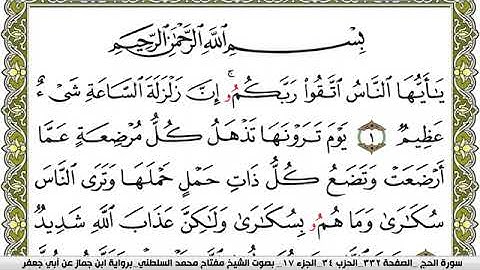 بِسْمِ اللَّهِ الرَّحْمَٰنِ الرَّحِيمِ
يَـٰأَيُّهَا النَّاسُ اتَّقُوا۟ رَبَّكُمُۥ ۚ إِنَّ زَلْزَلَةَ السَّاعَةِ شَىْءٌ
عَظِيمٌ ١ يَوْمَ تَرَوْنَهَا تَذْهَلُ كُلُّ مُرْضِعَةٍ عَمَّا
أَرْضَعَتْ وَتَضَعُ كُلُّ ذَاتِ حَمْلٍ حَمْلَهَا وَتَرَى النَّاسَ
سُكَـٰرَىٰ وَمَا هُمُۥ بِسُكَـٰرَىٰ وَلَـٰكِنَّ عَذَابَ اللَّهِ شَدِيدٌ
سورة الحج _الصفحة ٣٣٢_الحزب ٣٤_الجزء ١٧_ بصوت الشيخ مفتاح محمد السلطني_برواية ابن جماز عن أبي جعفر